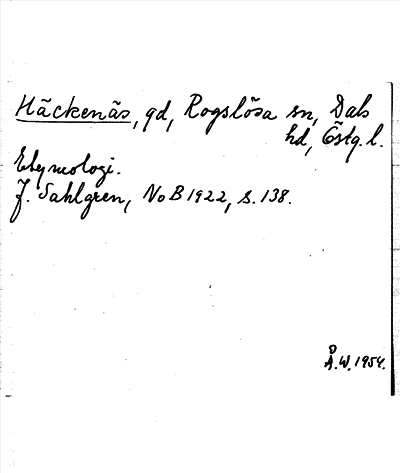 Häckenäs, gd, Rogslösa sn, Dals
hd, Östg. l.
Etymologi.
J. Sahlgren, NoB 1922, s. 138.
Å. W. 1954.